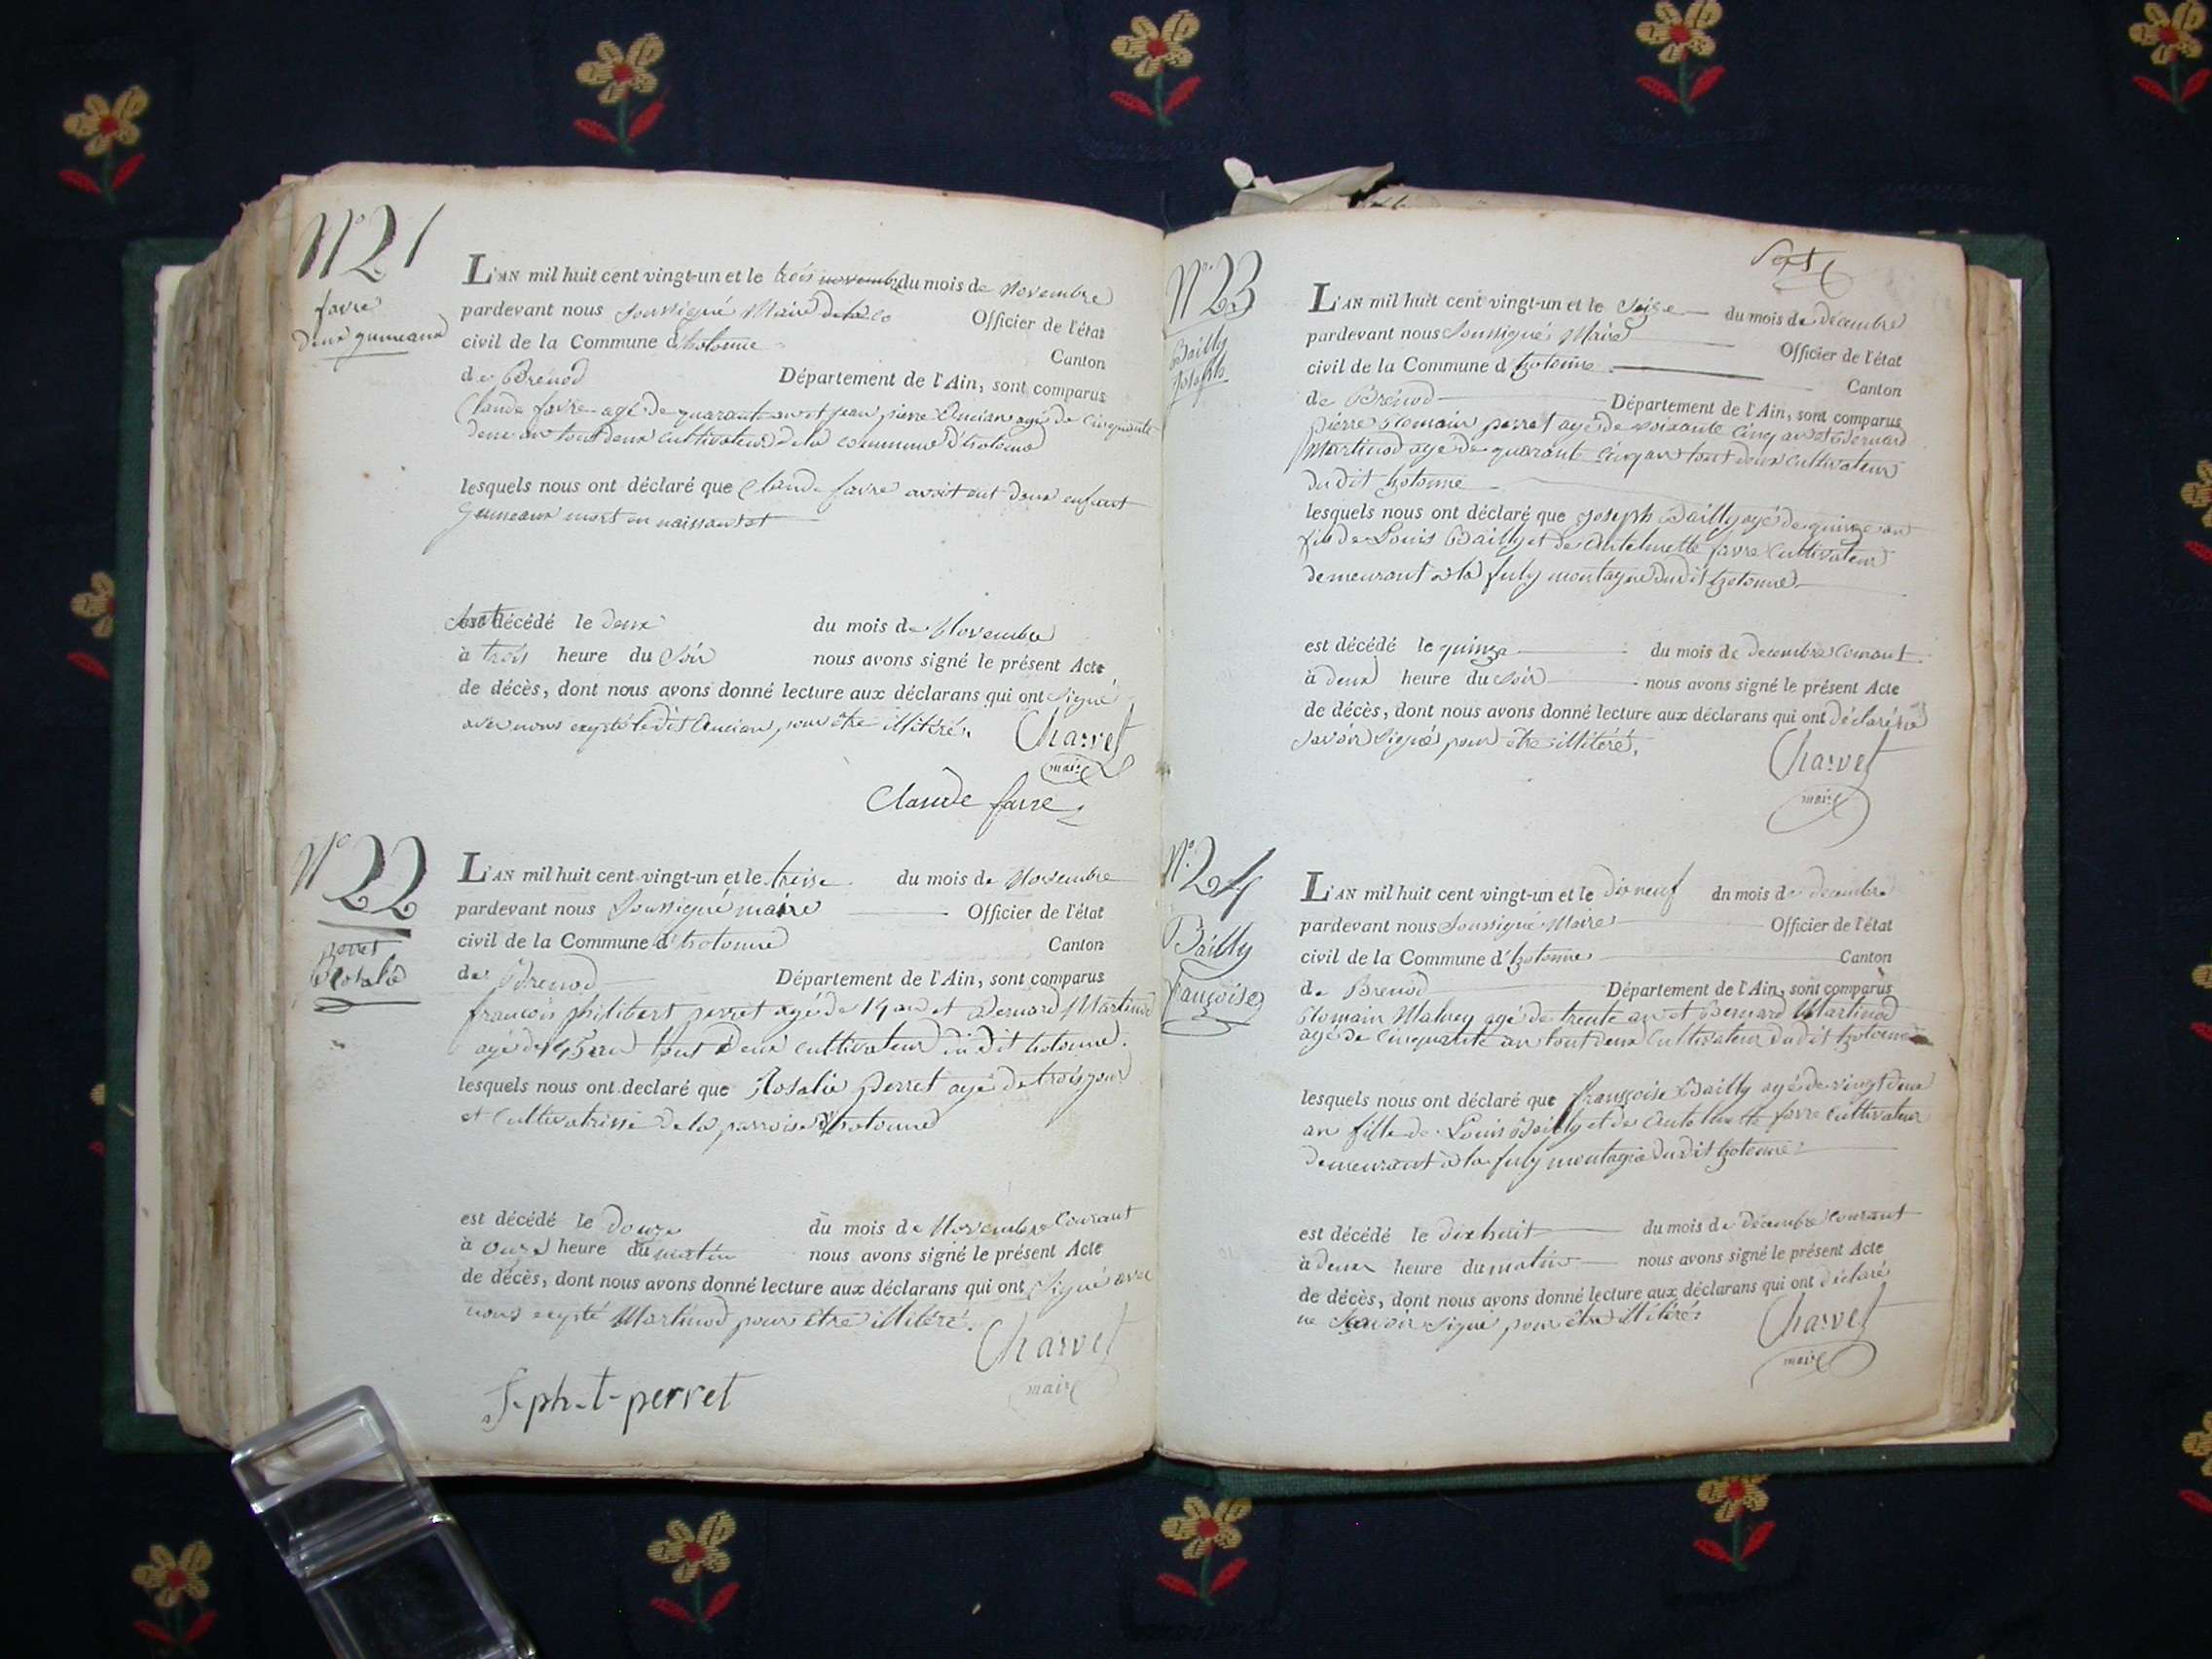 N° 21
favre
deux gumeaux
L'AN mil huit cent vingt-un et le trois novembre du mois de Novembre
pardevant nous soussigné Maire de la co Officier de l'état
civil de la Commune d'hotonne Canton
de Brénod Département de l'Ain, sont comparus
Claude favre agé de quarante an et jean pierre Ancian agé de cinquante
deux an tout deux cultivateur de la commune d'hotonne
lesquels nous ont déclaré que Claude favre avoit eut deux enfant
gumeaux mort en naissant et
sont est décédé le deux du mois de Novembre
à trois heure du soir nous avons signé le présent Acte
de décès, dont nous avons donné lecture aux déclarans qui ont signé
avec nous exepté ledit Ancian pour être illitéré.
Charvet
maire
Claude favre
N° 22
perret
Rosalie
L'AN mil huit cent vingt-un et le treise du mois de Novembre
pardevant nous soussigné maire Officier de l'état
civil de la Commune d'hotonne Canton
de Brenod Département de l'Ain, sont comparus
françois philibert perret agé de 19 an et Bernard Martinod
agé de 45 an tout deux cultivateur du dit hotonne.
lesquels nous ont declaré que Rosalie perret agé de trois jour
et cultivatrisse de la parroise d'hotonne
est décédé le douze du mois de Novembre Courant
à onze heure du matin nous avons signé le présent Acte
de décès, dont nous avons donné lecture aux déclarans qui ont signé avec
nous exepté Martinod pour être illitéré.
Charvet
maire
f-ph-t-perret
Sept
N° 23
Bailly
Joseph
L'AN mil huit cent vingt-un et le seize du mois de decembre
pardevant nous Soussigné Maire Officier de l'état
civil de la Commune d'hotonne Canton
de Brénod Département de l'Ain, sont comparus
pierre Romain perret agé de soixante cinq an et Bernard
Martinod agé de quarante cinq an tout deux cultivateur
dudit hotonne
lesquels nous ont déclaré que Joseph Bailly agé de quinze an
fils de Louis Bailly et de Antelmette favre cultivateur
demeurant a la fuly montagne dudit hotonne
est décédé le quinze du mois de decembre courant
à deux heure du soir nous avons signé le présent Acte
de décès, dont nous avons donné lecture aux déclarans qui ont déclaré ne
savoir signé pour être illitéré.
Charvet
maire
N° 24
Bailly
françoise
L'AN mil huit cent vingt-un et le dix neuf dn mois de decembre
pardevant nous Soussigné Maire Officier de l'état
civil de la Commune d'hotonne Canton
de Brenod Département de l'Ain, sont comparus
Romain agé de trente an et Bernard Martinod
agé de cinquante an tout deux cultivateur dudit hotonne
lesquels nous ont déclaré que françoise Bailly agé de vingt deux
an fille de Louis Bailly et de Antelmette favre cultivateur
demeurant à la fuly montagne dudit hotonne
est décédé le dix huit du mois de décembre courant
à deux heure du matin nous avons signé le présent Acte
de décès, dont nous avons donné lecture aux déclarans qui ont déclaré
ne savoir signé pour être illitéré.
Charvet
maire